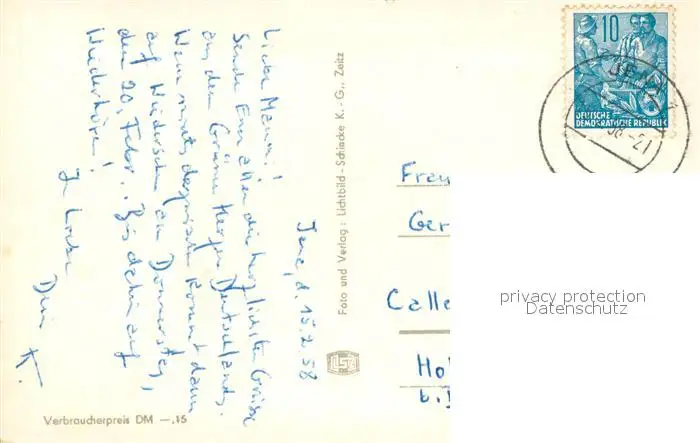 Jena, d. 15.2.58
Liebe Mammi!
Sende Euch allen die herzlichsten Grüsse
aus dem Grünen Herzen Deutschlands.
Wenn nichts dazwischen kommt dann
auf Wiedersehen am Donnerstag,
den 20. Febr. Bis dahin auf
Wiederhören!
In Liebe
Dein K.
Foto und Verlag: Lichtbild-Schincke K.-G., Zeitz
Verbraucherpreis DM —.15
10
DEUTSCHE
DEMOKRATISCHE REPUBLIK
JENA
58-21
Frau
Ger
Calle
Hol
b.
privacy protection
Datenschutz